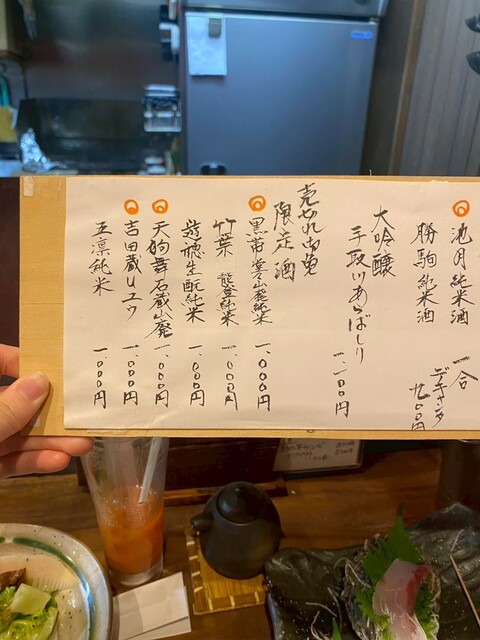 池月純米酒
勝駒純米酒
一合
デキャンタ
九〇〇円
大吟醸
手取川あらばしり
一、一〇〇円
売切れ御免
限定酒
黒帯 堂々山廃純米
一、〇〇〇円
竹葉 能登純米
一、〇〇〇円
遊穂生酛純米
一、〇〇〇円
天狗舞石蔵山廃
一、〇〇〇円
吉田蔵Uユウ
一、〇〇〇円
五凛純米
一、〇〇〇円